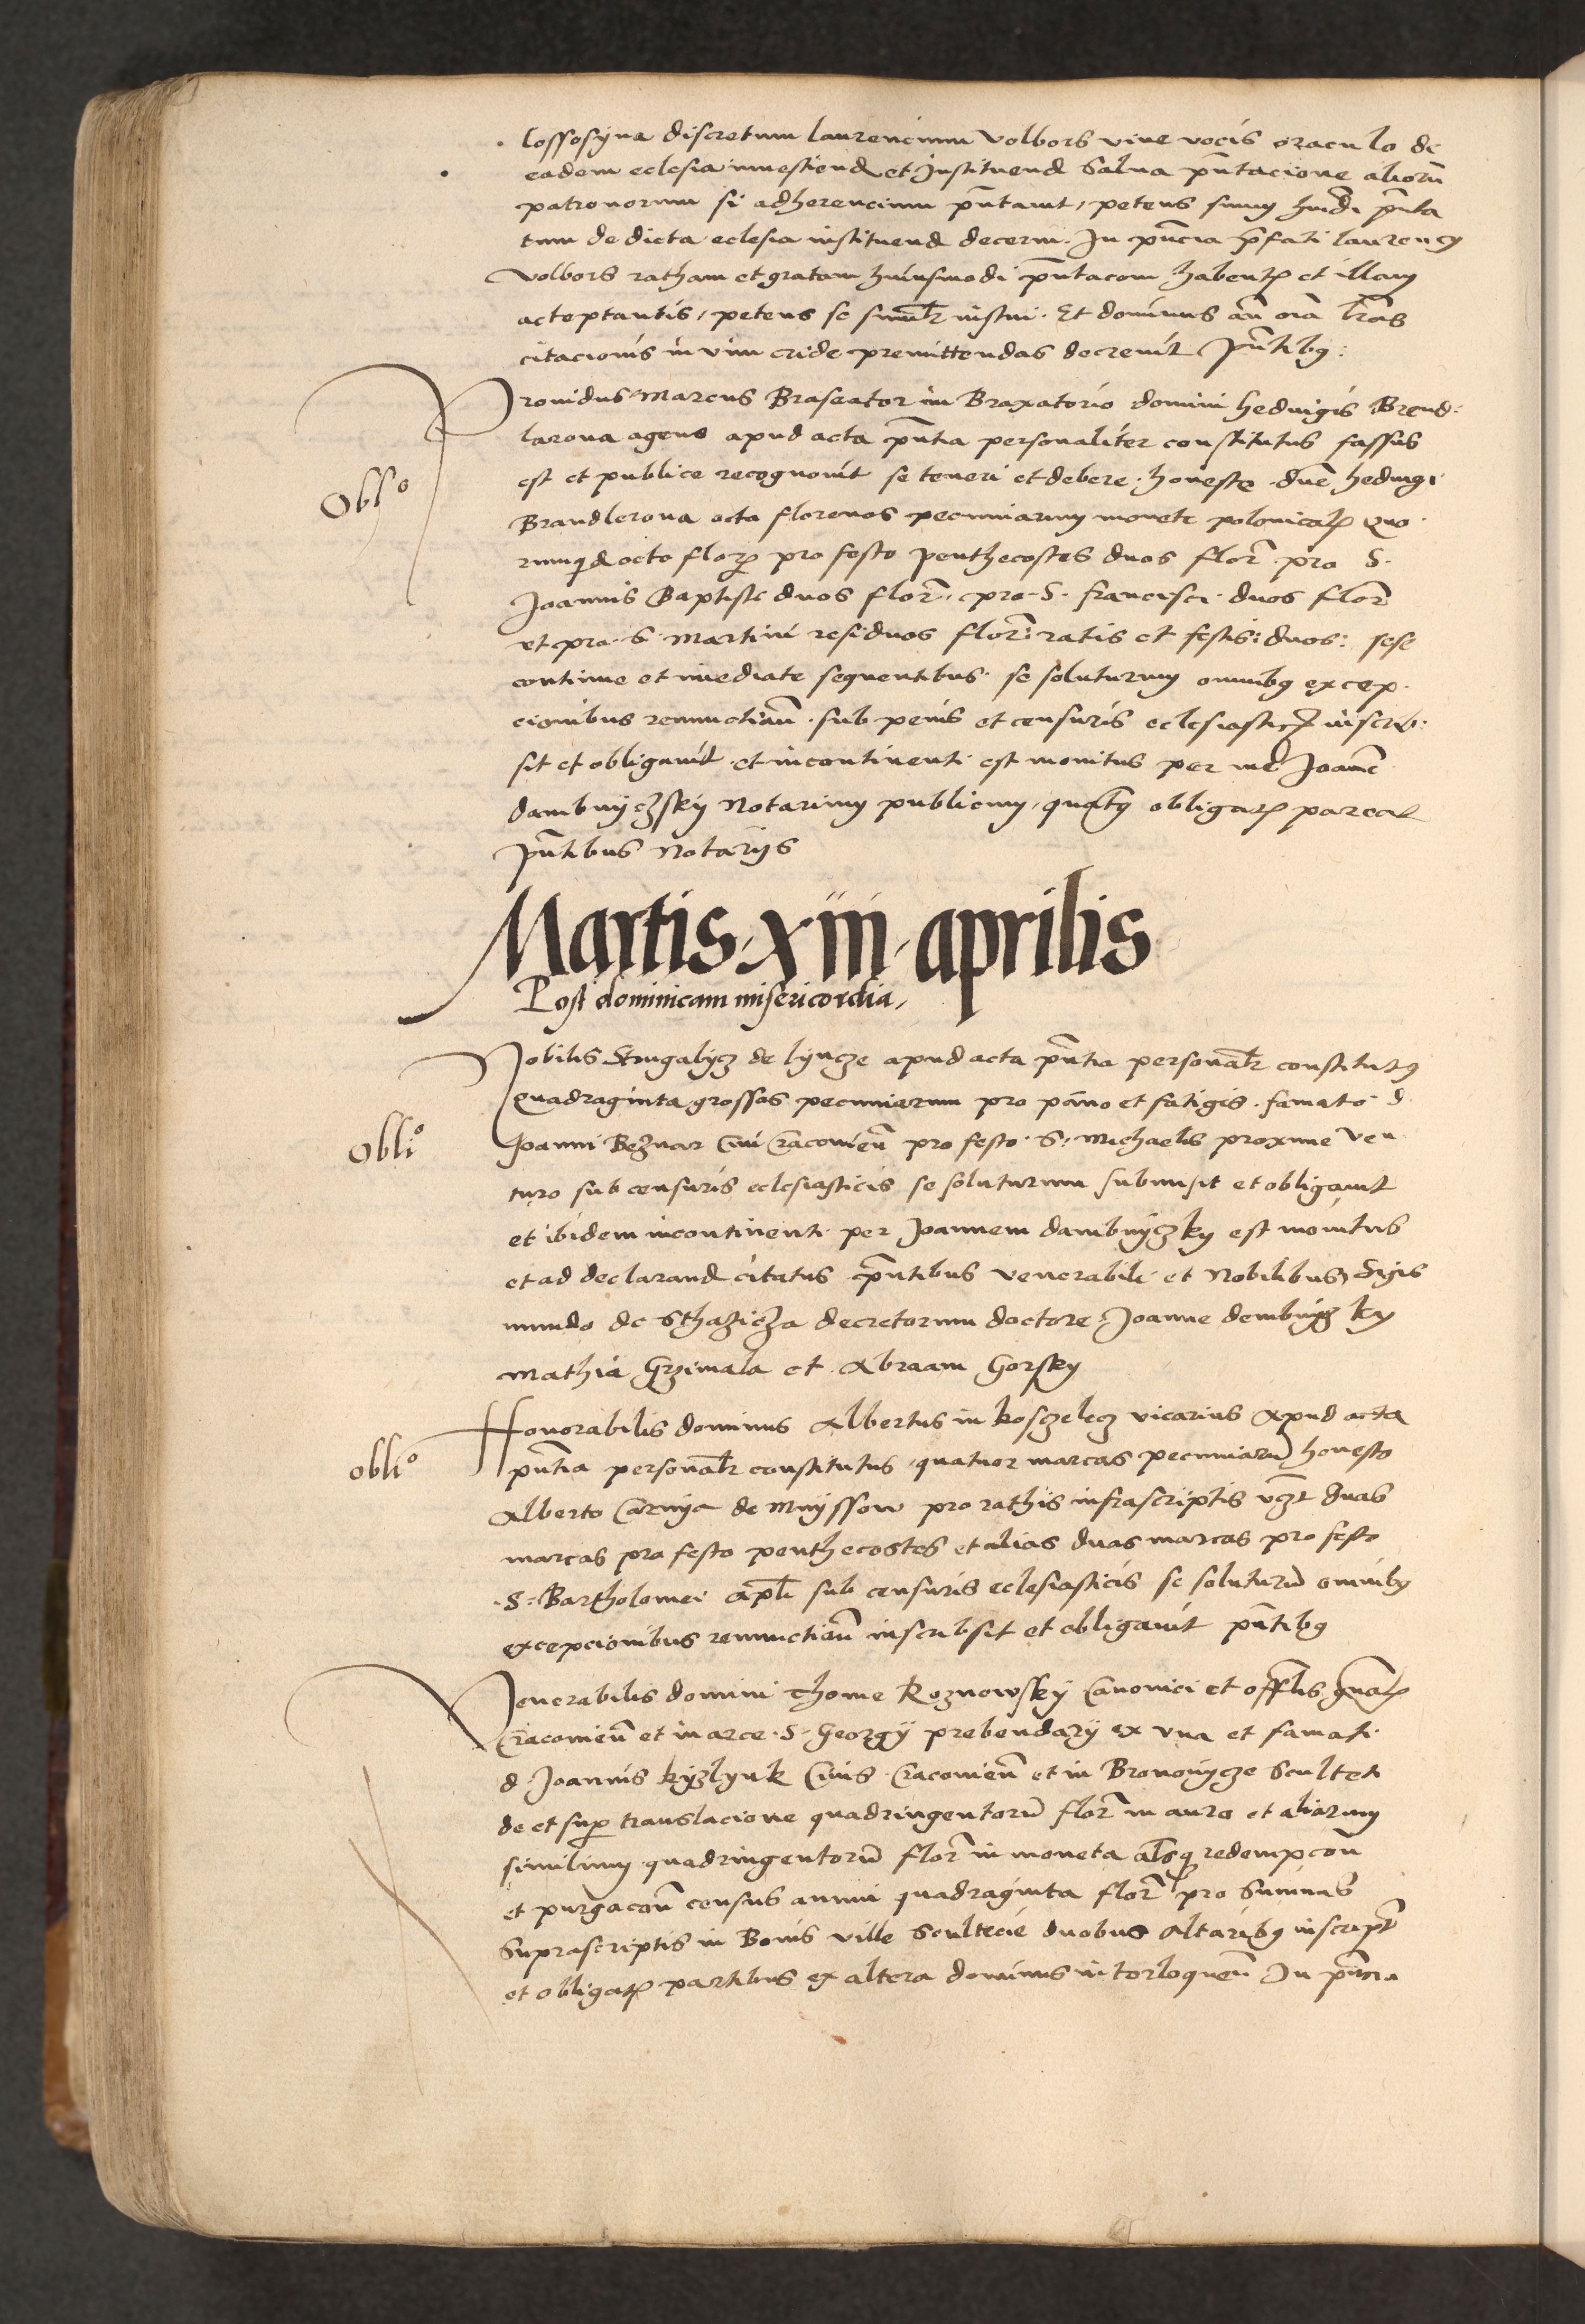 Cossosyna discretum laurencium Volbors vive vocis oraculo de
eadem eclesia investiend et Instituend Salva pñtacione aliorũ
patronorum si adherencium pñtavit, petens suum hmõi pñta
tum de dicta eclesia instituend decerni. In pñcia p̃fati laurency
Volbors ratham et gratam huiusmodi pñtacom habentꝭ et illam
acceptantis, petens se simul̃r institui. Et dominus añ oĩa l̃ras
citacionis in vim cride premittendas decrevit pñtibꝯ:
Providus Marcus Braseator in Braxatorio domini hedvigis Brend:
larova agens apud acta pñtia personaliter constitutus fassus
Obl°
est et publice recognovit se teneri et debere. honeste. dñe hedvigi
Brandlerova octo florenos pecuniarum monete polonicalꝭ Quo
rumqd octo florꝭ pro festo penthecostes duos florꝭ. pro S.
Joannis Baptiste duos florꝭ, pro. S. francisci. duos florꝭ
et pro. S. Martini residuos florꝭ: ratis et festis: duos: sese
continue et inediate sequentibus. se soluturum omnibꝯ excep.
cionibus renunctiañ. sub penis et censuris eclesiasticꝭ inscrib:
sit et obligavit. et incontinenti est monitus per me Joannẽ
dambnyczsky Notarium publicum, quatꝯ obligatꝭ pareat
pñtibus Notariis
Martis. xiii. aprilis
Post dominicam misericordia,
Nobilis Strugalycz de lyncze apud acta pñtia personal̃r constitutꝯ
Quadraginta grossos pecuniarum pro panno et fatigis. famato d.
Obli°
Joanni Beznar Civi Cracovieñ pro festo. S. Michaelis proxime ven
turo sub censuris eclesiasticis se soluturum submisit et obligavit
et ibidem incontinenti per Joannem dambnyczky est monitus
et ad declarand citatus pñtibus venerabili et Nobilibus, Sigis
mundo de Sthazicza decretorum doctore, Joanne dembnyczky
Mathia Grzimala et Abraam Gorsky
Honorabilis dominus Albertus in kosczelecz vicarius Apud acta
obli°
pñtia personal̃r constitutus, quatuor marcas pecuniarũ honesto
Alberto Carnya de Mnyssow pro rathis infrascriptis vꝫt duas
marcas pro festo penthecostes et alias duas marcas pro festo
.S. Bartholomei apl̃i sub censuris eclesiasticis se soluturũ omnibꝯ
excepcionibus renunctiañ inscribsit et obligavit pñtibꝯ
Venerabilis domini Thome Roznowsky Canonici et offlis gñalꝭ
Cracovieñ et in arce. S. Georgy prebendary ex una et famati
d. Joannis kyzlynk Civis. Cracovieñ et in Bronovycze Sculteti
de et suꝑ translacione quadringentorũ florꝭ in auro et aliorum
similium quadringentorũ florꝭ in moneta alsqꝫ redempcoñ
et purgacoñ census annui quadraginta florꝭ pro Summis
Suprascriptis in Bonis ville Scultecie duobus Altaribꝯ inscriptꝭ
et obligatꝭ partibus ex altera dominus interloqueñ In pñcia